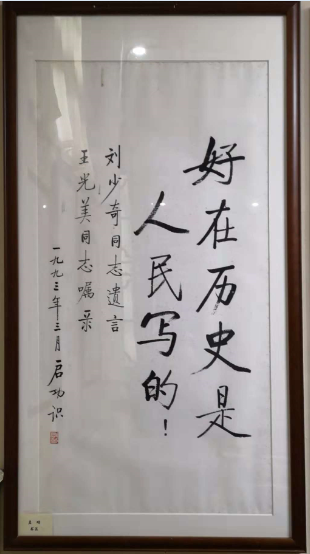 好在历史是
人民写的！
刘少奇同志遗言
王光美同志嘱录
一九九三年三月启功识